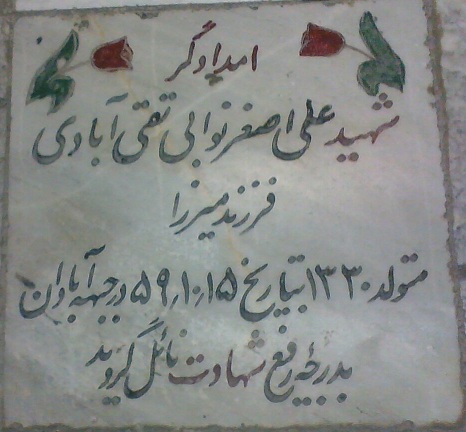 امدادگر
شهید علی اصغر نوابی تقی آبادی
فرزند میرزا
متولد ۱۳۳۰ بتاریخ ۵۹٫۱۰٫۱۵ در جبهه آبادان
بدرجه رفیع شهادت نائل گردید